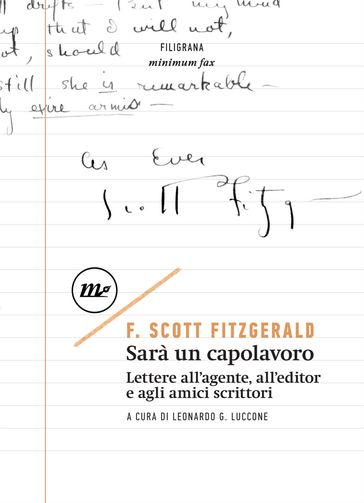 drifts — But my mind
up that I will not,
ot, should
FILIGRANA
minimum fax
still she is remarkable —
ly
As Ever
Scott Fitzg
mf
F. SCOTT FITZGERALD
Sarà un capolavoro
Lettere all'agente, all'editor
e agli amici scrittori
A CURA DI LEONARDO G. LUCCONE